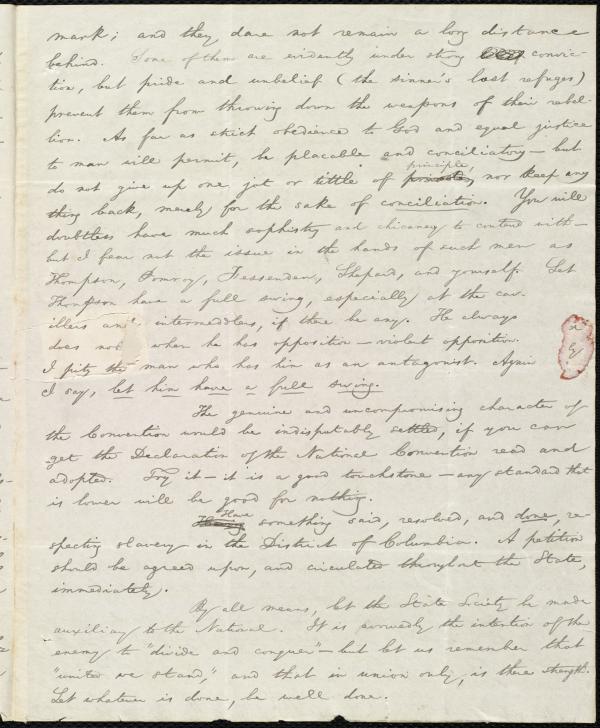 mark; and they dare not remain a long distance
behind. Some of them are evidently under strong convic-
tion, but pride and unbelief (the sinner's last refuges)
prevent them from throwing down the weapons of their rebel-
lion. As far as strict obedience to God and equal justice
to man will permit, be placable and conciliatory — but
do not give up one jot or tittle of principle, nor keep any
thing back, merely for the sake of conciliation. You will
doubtless have much sophistry and chicanery to contend with —
but I fear not the issue in the hands of such men as
Thompson, Pomroy, Fessenden, Shepard, and yourself. Let
Thompson have a full swing, especially at the cav-
illers and intermeddlers, if there be any. He always
does not when he has opposition — violent opposition.
I pity the man who has him as an antagonist. Again
I say, let him have a full swing.
The genuine and uncompromising character of
the Convention would be indisputably settled, if you can
get the Declaration of the National Convention read and
adopted. Try it — it is a good touchstone — any standard that
is lower will be good for nothing.
Have something said, resolved, and done, re-
specting slavery in the District of Columbia. A petition
should be agreed upon, and circulated throughout the State,
immediately.
By all means, let the State Society be made
auxiliary to the National. It is avowedly the intention of the
enemy to "divide and conquer" — but let us remember that
"united we stand," and that in union only, is there strength.
Let whatever is done, be well done.